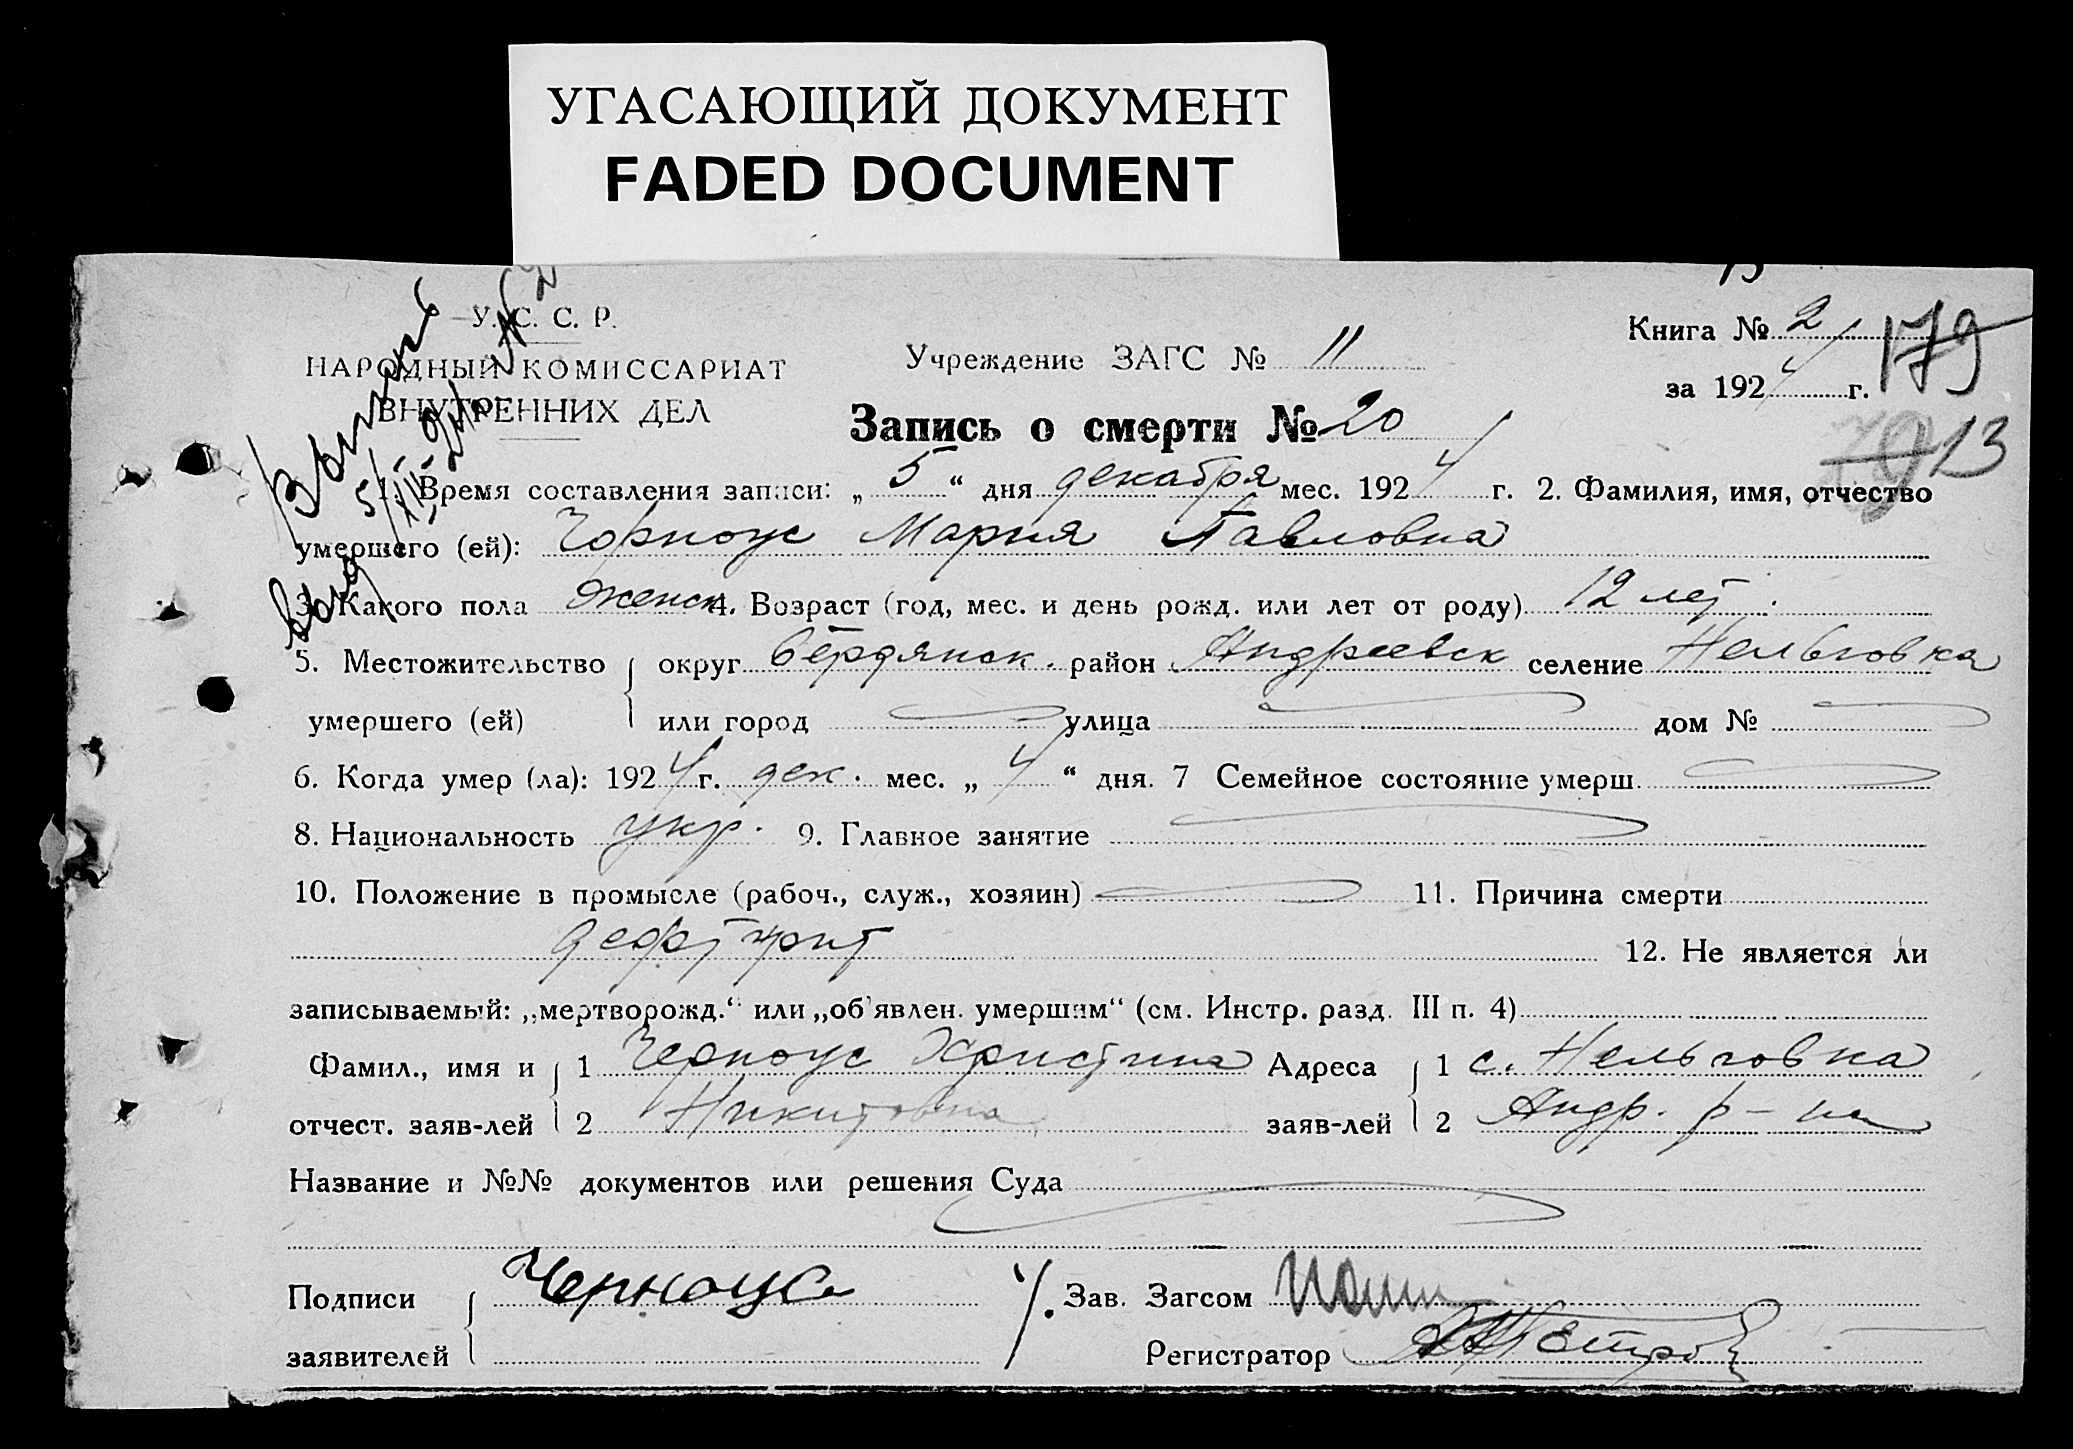 УГАСАЮЩИЙ ДОКУМЕНТ
FADED DOCUMENT
У. С. С. Р.
НАРОДНЫЙ КОМИССАРИАТ
ВНУТРЕННИХ ДЕЛ
Учреждение ЗАГС № 11
Книга № 2
за 1924 г.
179
13
Запись о смерти № 20
1. Время составления записи: „5“ дня декабря мес. 1924 г. 2. Фамилия, имя, отчество
умершего (ей): Чорноус Мария Павловна
3. Какого пола женск. 4. Возраст (год, мес. и день рожд. или лет от роду) 12 лет.
5. Местожительство округ Бердянск. район Андреевск селение Нельговка
умершего (ей) или город улица дом №
6. Когда умер (ла): 1924 г. дек. мес. „4“ дня. 7 Семейное состояние умерш.
8. Национальность укр. 9. Главное занятие
10. Положение в промысле (рабоч., служ., хозяин) 11. Причина смерти
дефтирит 12. Не является ли
записываемый: „мертворожд.“ или „об'явлен. умершим“ (см. Инстр. разд. III п. 4)
Фамил., имя и 1 Черноус Христина Адреса 1 с. Нельговка
отчест. заяв-лей 2 Никитовна заяв-лей 2 Андр. р-на
Название и №№ документов или решения Суда
Подписи Черноус Зав. Загсом
заявителей Регистратор